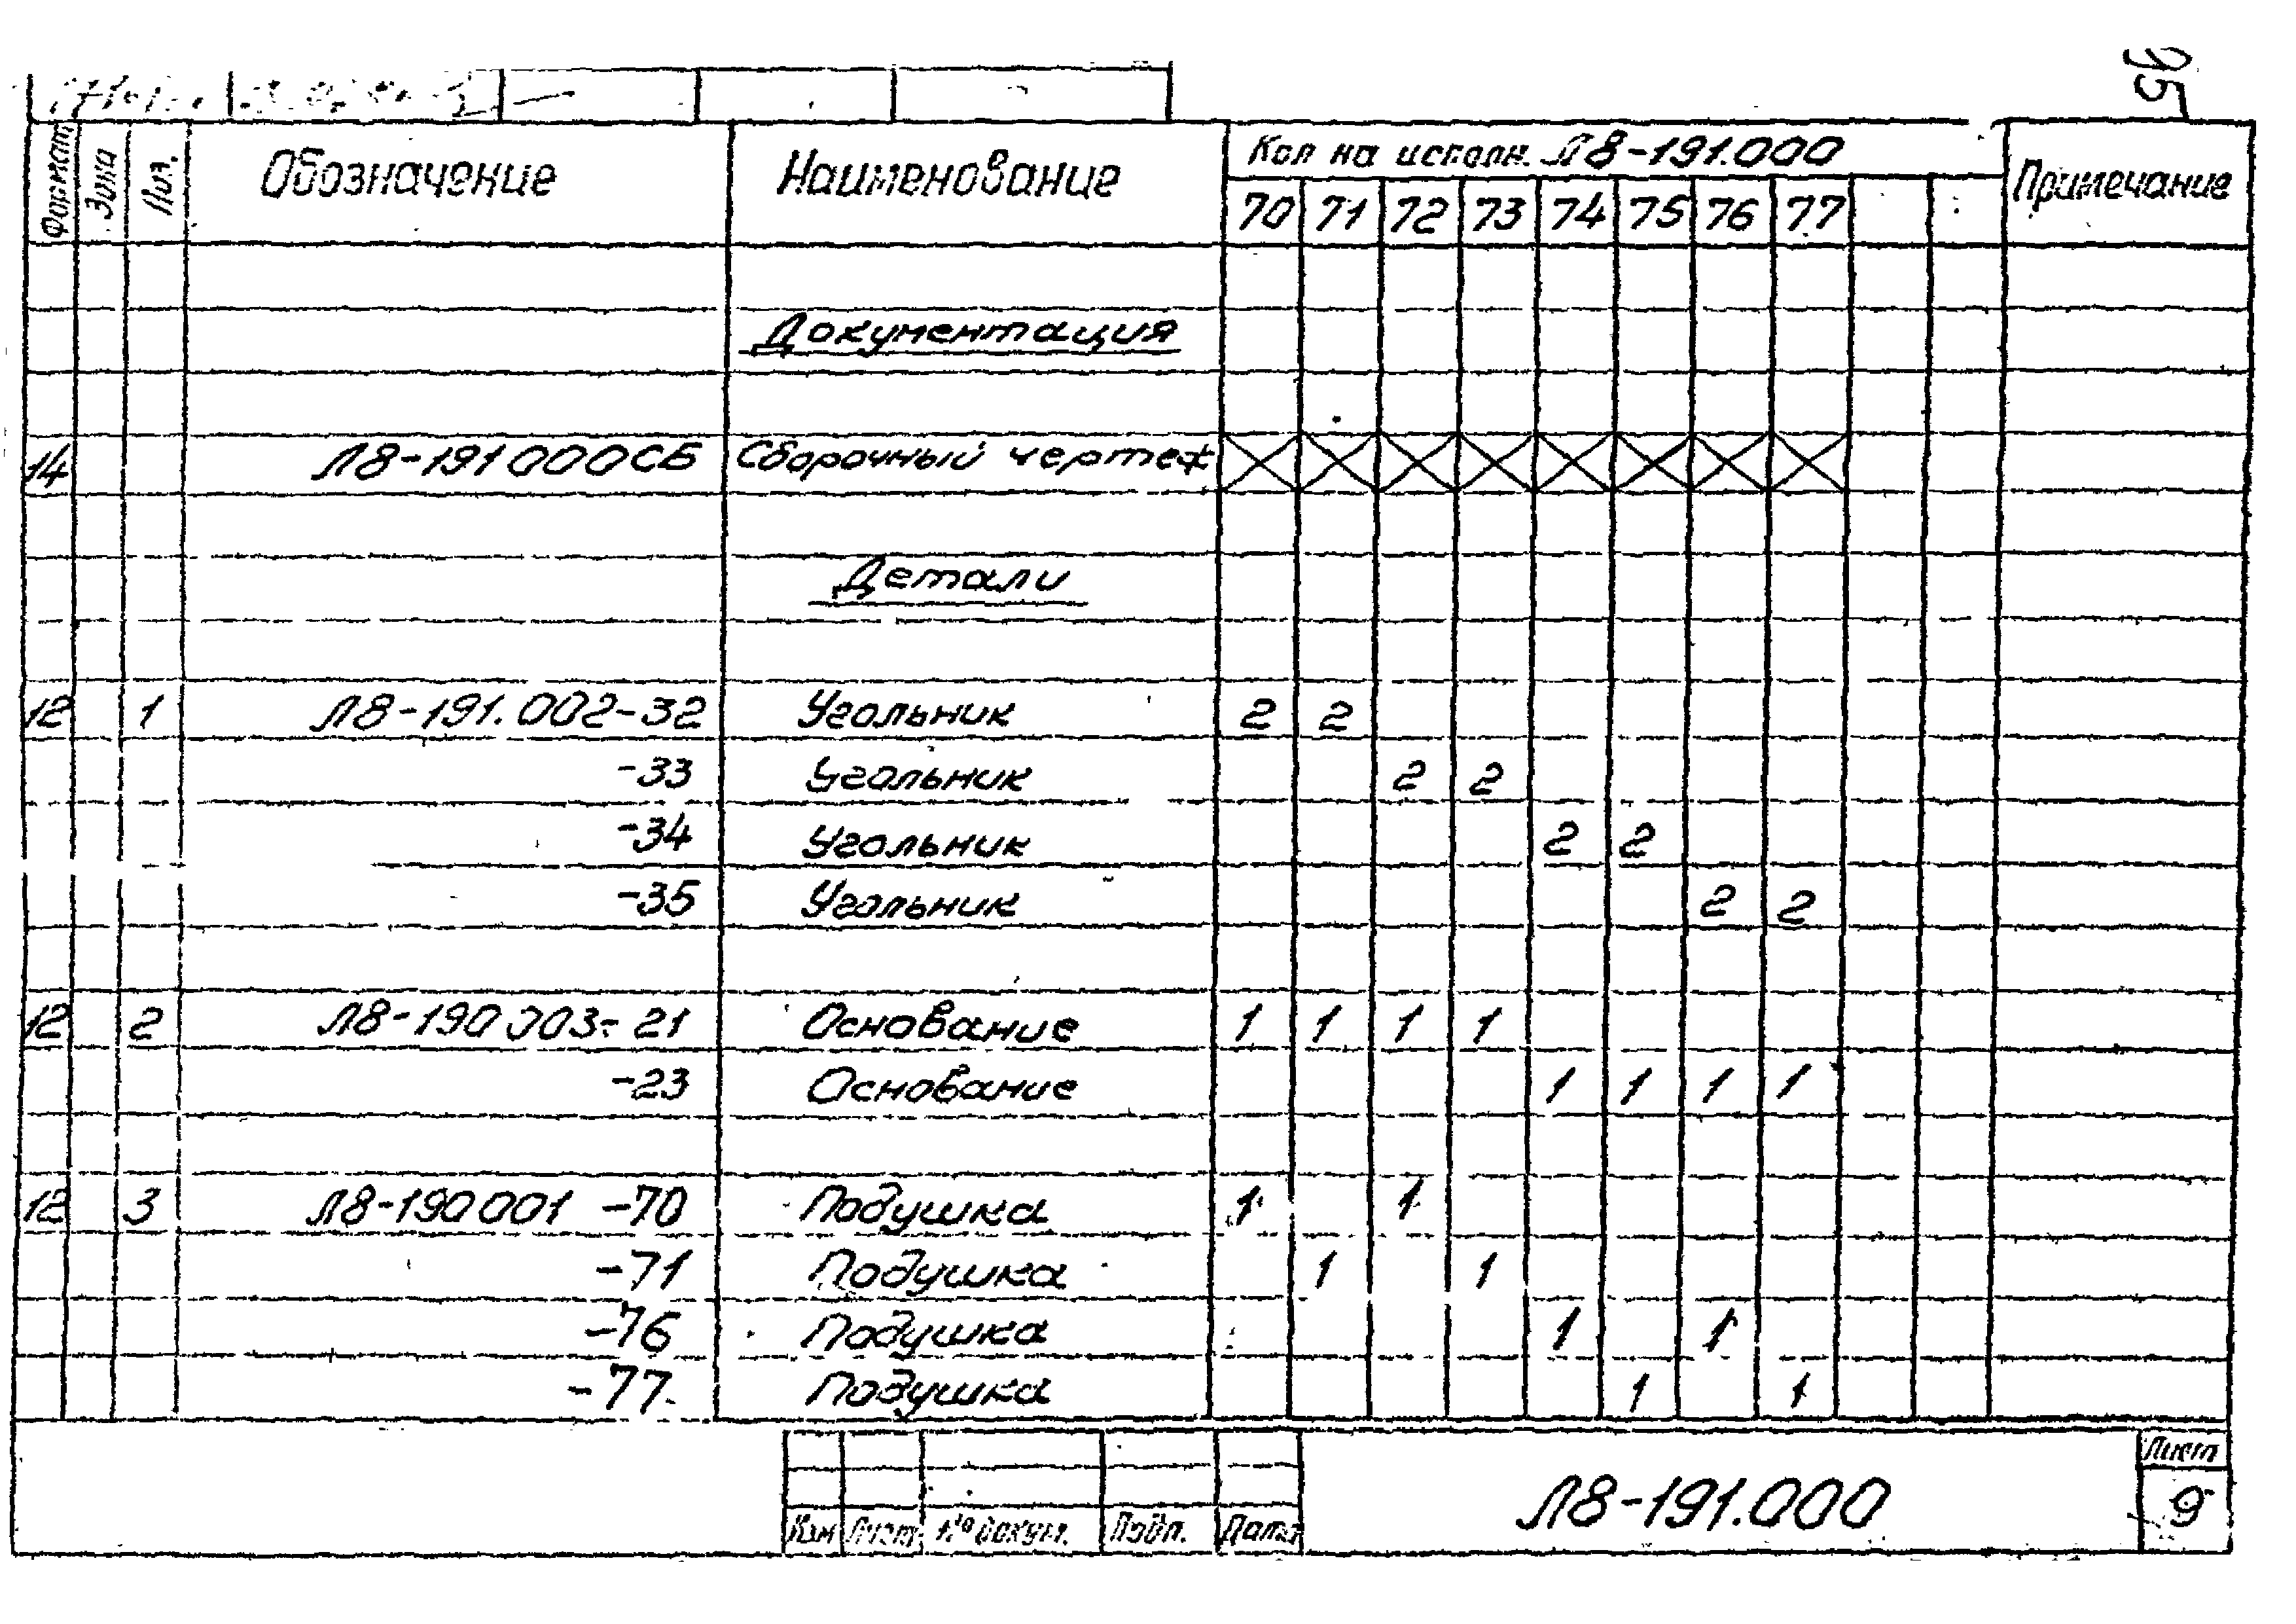 95
Формат Зона Поз. Обозначение Наименование Кол на исполн. Л8-191.000 Примечание
70 71 72 73 74 75 76 77
Документация
14 Л8-191 000СБ Сборочный чертеж
Детали
12 1 Л8-191.002-32 Угольник 2 2
-33 Угольник 2 2
-34 Угольник 2 2
-35 Угольник 2 2
12 2 Л8-190 003-21 Основание 1 1 1 1
-23 Основание 1 1 1 1
12 3 Л8-190 001 -70 Подушка 1 1
-71 Подушка 1 1
-76 Подушка 1 1
-77 Подушка 1 1
Изм Лист № докум. Подп. Дата Л8-191.000 Лист
9